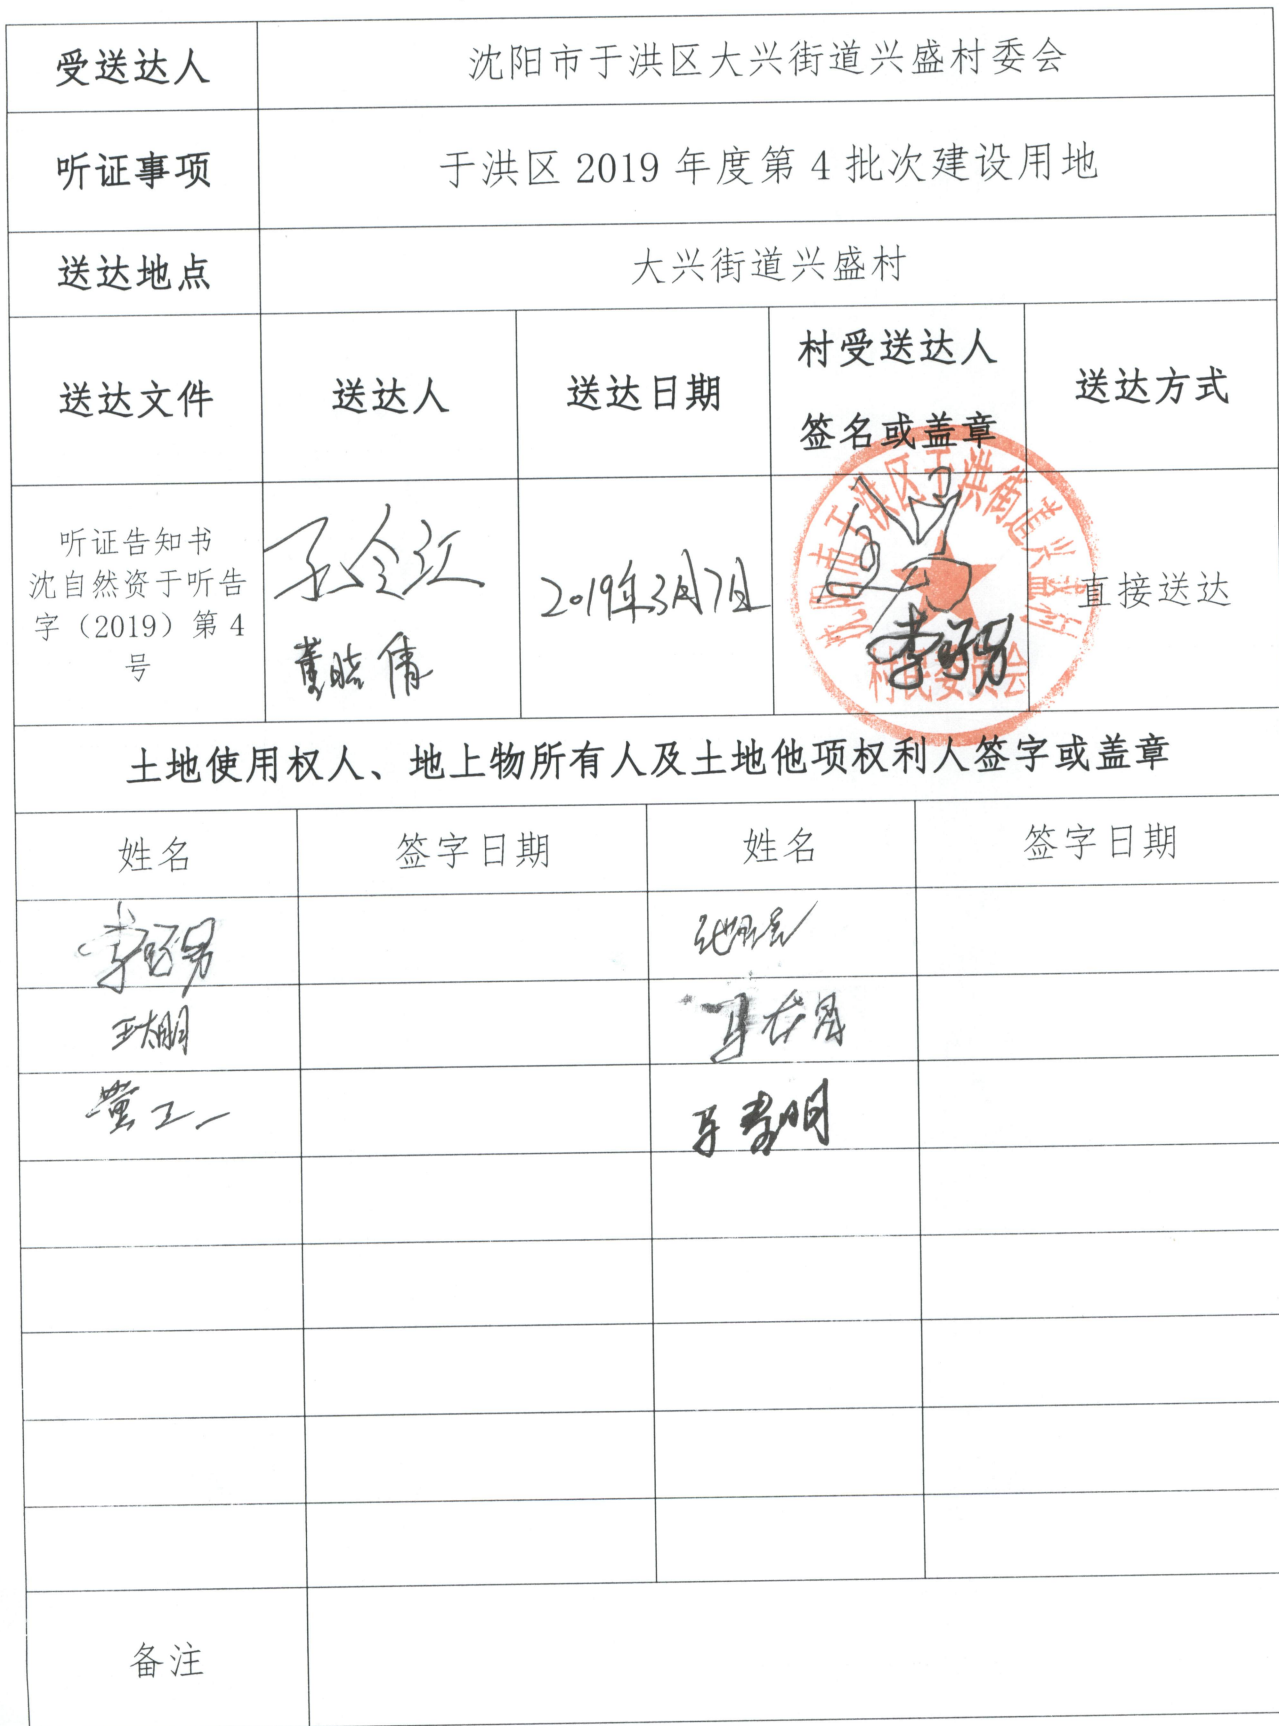 受送达人 沈阳市于洪区大兴街道兴盛村委会
听证事项 于洪区 2019 年度第 4 批次建设用地
送达地点 大兴街道兴盛村
送达文件 送达人 送达日期 村受送达人 送达方式
签名或盖章
听证告知书
沈自然资于听告
字（2019）第 4
号
董晓倩
2019年3月7日
沈阳市于洪区于洪街道兴盛村
村民委员会
直接送达
土地使用权人、地上物所有人及土地他项权利人签字或盖章
姓名 签字日期 姓名 签字日期
王太朋
备注